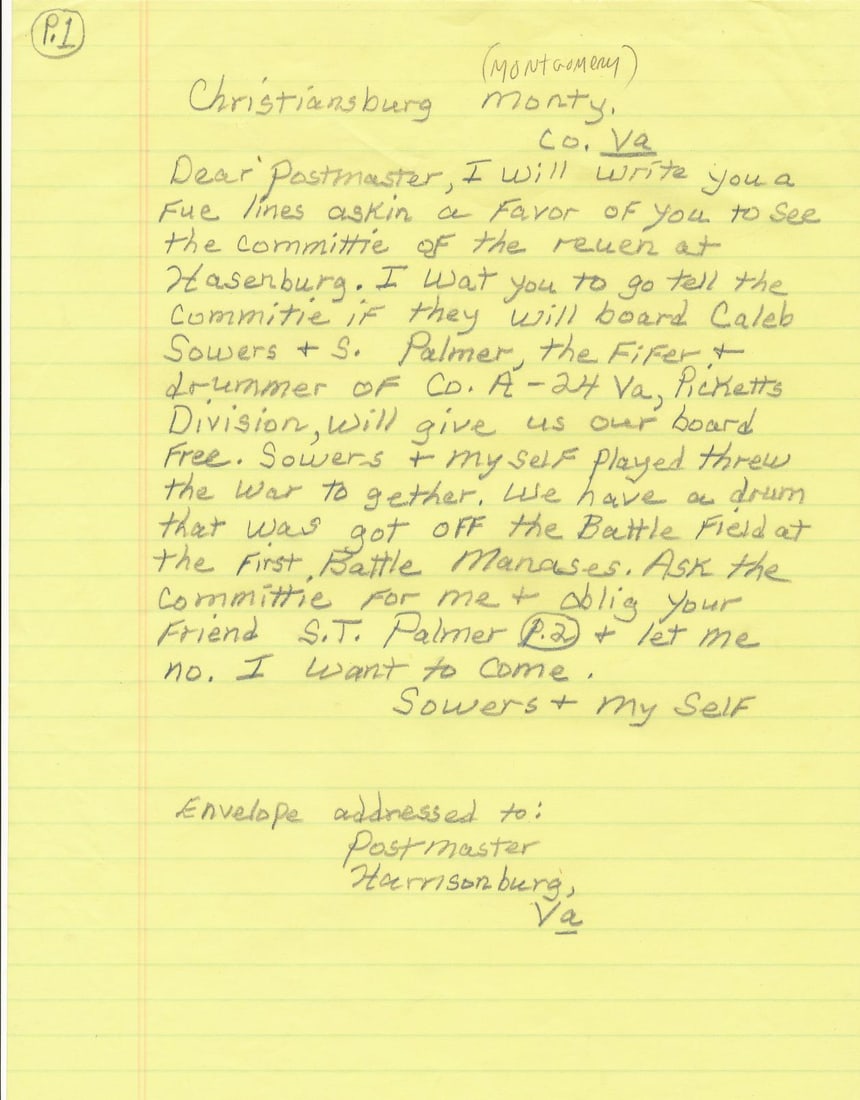 P.1
(Montgomery)
Christiansburg Monty,
Co. Va
Dear Postmaster, I will write you a
Fue lines askin a Favor of you to See
the committie of the reuen at
Hasenburg. I wat you to go tell the
Commitie if they will board Caleb
Sowers + S. Palmer, the Fifer +
drummer of Co. A-24 Va, Picketts
Division, will give us our board
Free. Sowers + my self played threw
the war to gether. We have a drum
that was got off the Battle Field at
the First Battle Manases. Ask the
Committie for me + oblig your
Friend S.T. Palmer P.2 + let me
no. I want to come.
Sowers + my Self
Envelope addressed to:
Postmaster
Harrisonburg,
Va